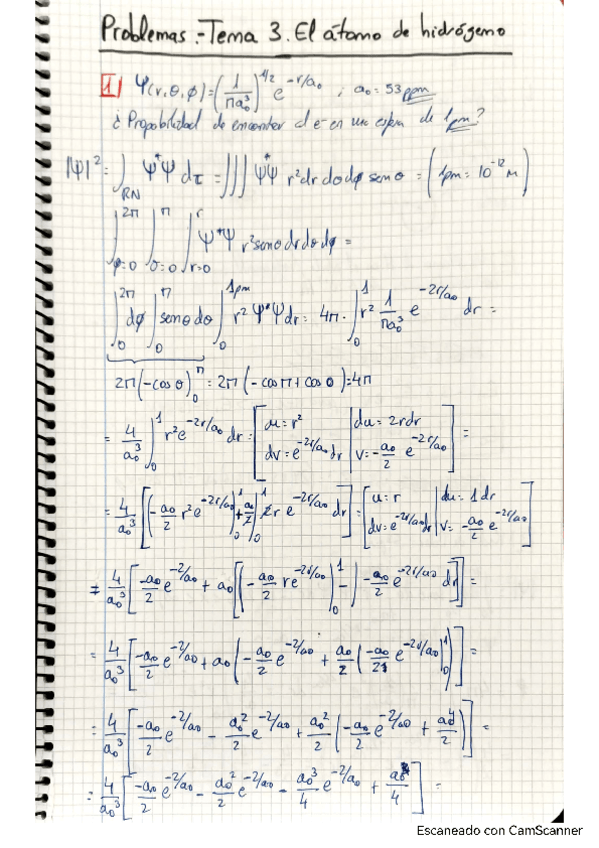 Problemas.-Tema 3. El átomo de hidrógeno
1) Ψ(r,θ,φ)=(1/πa₀³)^1/2 e^-r/a₀ ; a₀=53 pm
¿Propobilidad de encontrar el e⁻ en una esfera de 1pm?
|Ψ|²=∫_RN Ψ*Ψ dτ = ∭ Ψ*Ψ r²dr dθdφ senθ = (1pm=10⁻¹² m)
∫_φ=0^2π ∫_θ=0^π ∫_r=0^r Ψ*Ψ r²senθ dr dθ dφ =
∫_0^2π dφ ∫_0^π senθ dθ ∫_0^1pm r² Ψ*Ψ dr = 4π · ∫_0^1 r² 1/πa₀³ e^-2r/a₀ dr =
2π(-cosθ)_0^π = 2π(-cosπ+cos0)=4π
= 4/a₀³ ∫_0^1 r²e^-2r/a₀ dr = [u=r² | du=2rdr
dv=e^-2r/a₀ dr | v=-a₀/2 e^-2r/a₀] =
= 4/a₀³ [(-a₀/2 r²e^-2r/a₀)_0^1 + a₀/2 ∫_0^1 2r e^-2r/a₀ dr] = [u=r | du=1dr
dv=e^-2r/a₀ dr | v=-a₀/2 e^-2r/a₀]
= 4/a₀³ [-a₀/2 e^-2/a₀ + a₀[(-a₀/2 re^-2r/a₀)_0^1 - ∫ -a₀/2 e^-2r/a₀ dr]] =
= 4/a₀³ [-a₀/2 e^-2/a₀ + a₀(-a₀/2 e^-2/a₀ + a₀/2 (-a₀/2 e^-2r/a₀)_0^1)] =
= 4/a₀³ [-a₀/2 e^-2/a₀ - a₀²/2 e^-2/a₀ + a₀²/2 (-a₀/2 e^-2/a₀ + a₀/2)] =
= 4/a₀³ [-a₀/2 e^-2/a₀ - a₀²/2 e^-2/a₀ - a₀³/4 e^-2/a₀ + a₀³/4] =
Escaneado con CamScanner